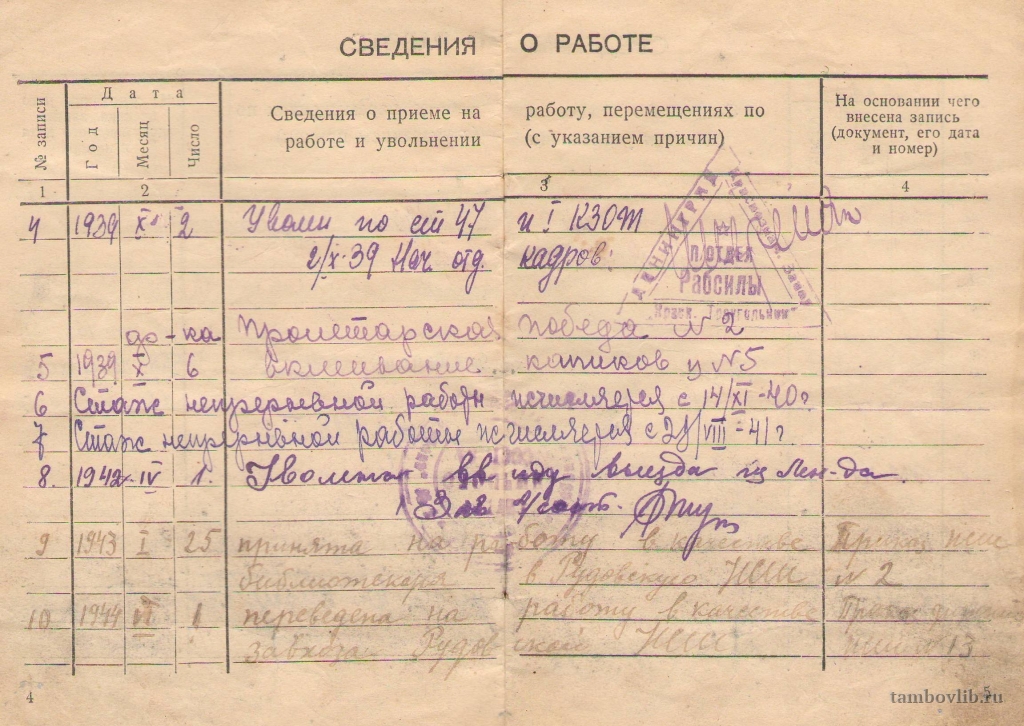 СВЕДЕНИЯ О РАБОТЕ
№ записи
Дата
Год
Месяц
Число
Сведения о приеме на работу, перемещениях по
работе и увольнении (с указанием причин)
На основании чего
внесена запись
(документ, его дата
и номер)
1 2 3 4
4 1939 X 2 Уволен по ст 47 п I КЗОТ
2/X-39 Нач. отд. кадров:
П. ОТДЕЛ
РАБСИЛЫ
"Красн. Треугольник"
Пролетарская победа N 2
5 1939 X 6 вклеивание капиков ц N5
6 Стаж непрерывной работы исчисляется с 14/XI-40г
7 Стаж непрерывной работы исчисляется с 25/VIII-41г
8. 1942 IV 1. Уволена ввиду выезда из Лен-да.
9 1943 I 25 принята на работу в качестве Приказ
библиотекаря в Рудовскую НСШ N 2
10 1944 1 переведена на работу в качестве Приказ
завхоза Рудовской НСШ N 13
4
5
tambovlib.ru